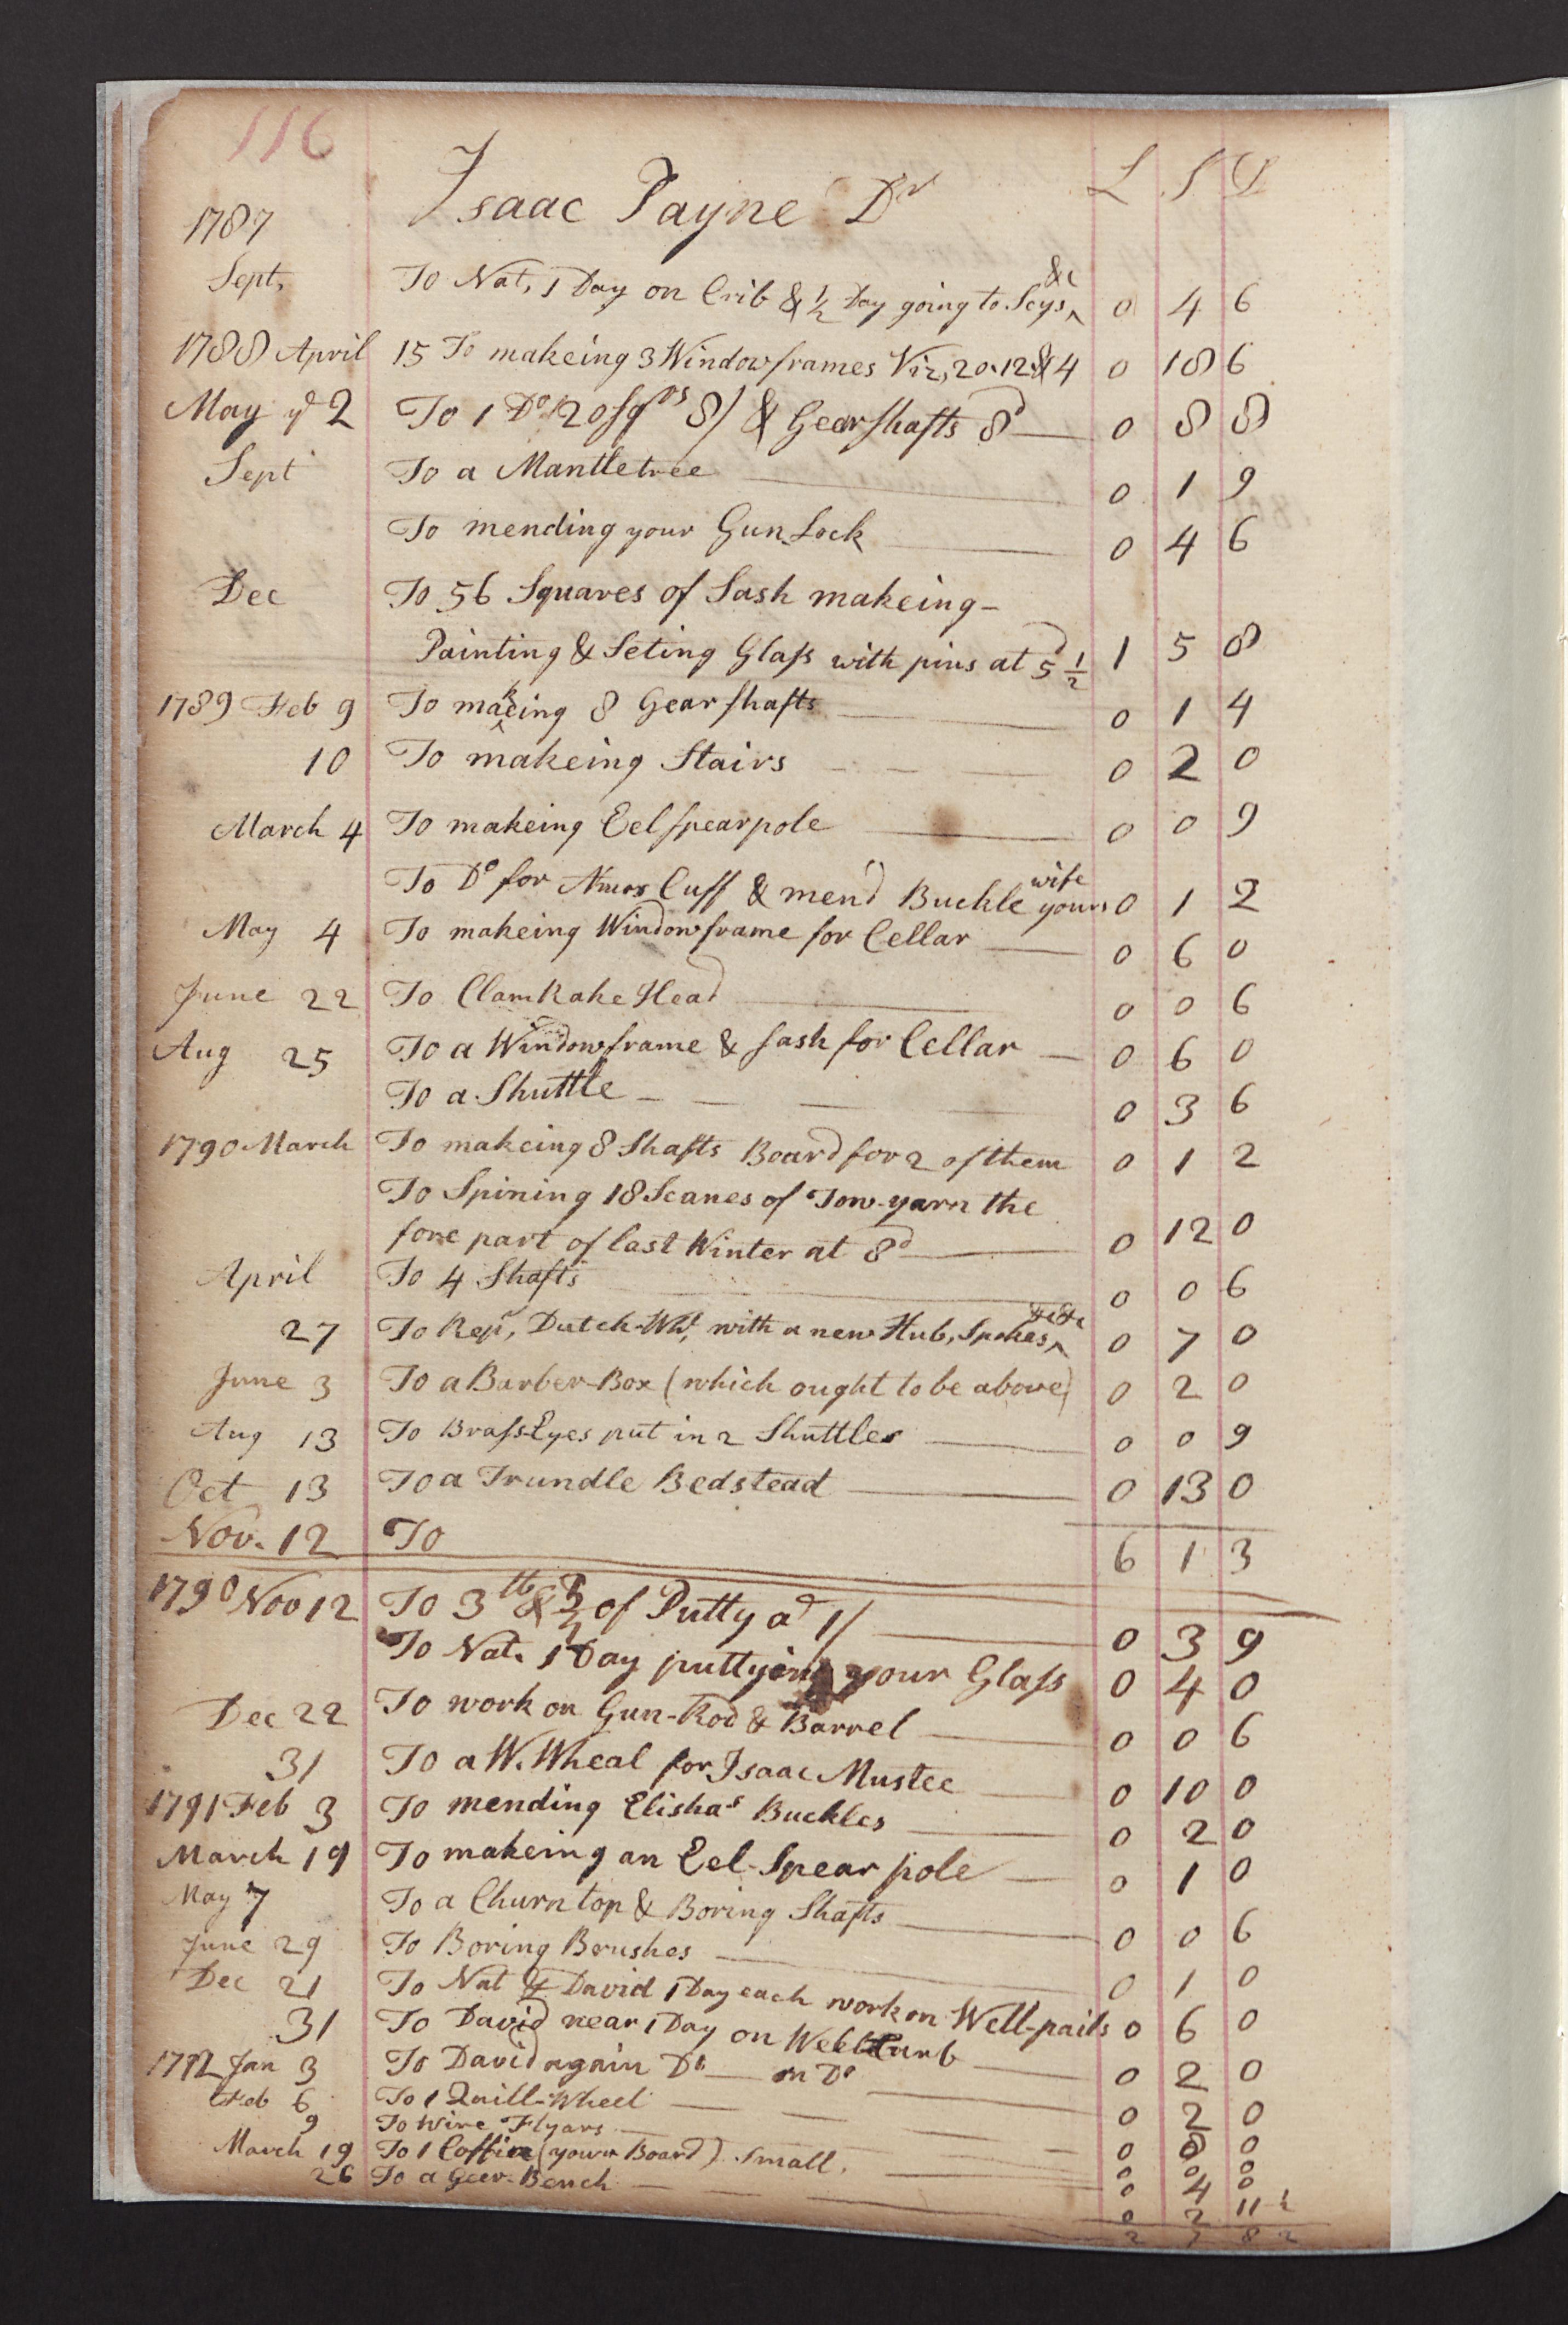 116
Isaac Payne Dr L S D
1787
Sept, To Nat, 1 Day on Crib & 1/2 Day going to Seys, &c 0 4 6
1788 April 15 To makeing 3 Windowframes Viz, 20. 12 & 4 0 18 6
May ye 2 To 1 Do 12 of sqrs 8/ & Gearshafts 8d 0 8 8
Sept To a Mantletree 0 1 9
To mending your Gun-Lock 0 4 6
Dec To 56 Squares of Sash makeing-
Painting & Seting Glass with pins at 5d 1/2 1 5 8
1789 Feb 9 To makeing 8 Gearshafts 0 1 4
10 To makeing Stairs 0 2 0
March 4 To makeing Eelspearpole 0 0 9
To Do for Amos Cuff & mend Buckle wife yours 0 1 2
May 4 To makeing Windowframe for Cellar 0 6 0
June 22 To Clam Rake Head 0 0 6
Aug 25 To a Windowframe & sash for Cellar 0 6 0
To a Shuttle 0 3 6
1790 March To makeing 8 Shafts Board for 2 of them 0 1 2
To Spining 18 Scanes of Tow-yarn the
fore part of last Winter at 8d 0 12 0
April To 4 Shafts 0 0 6
27 To Repr, Dutch-Whl, with a new Hub, Spokes, &c &c 0 7 0
June 3 To a Barber-Box (which ought to be above) 0 2 0
Aug 13 To Brass-Eyes put in 2 Shuttles 0 0 9
Oct 13 To a Trundle Bedstead 0 13 0
Nov. 12 To 6 1 3
1790 Nov 12 To 3 lb & of Putty ad 1/ 0 3 9
To Nat. 1 Day puttying your Glass 0 4 0
Dec 22 To work on Gun-Rod & Barrel 0 0 6
31 To a W. Wheal for Isaac Mustee 0 10 0
1791 Feb 3 To mending Elishas Buckles 0 2 0
March 19 To makeing an Eel-Spear pole 0 1 0
May 7 To a Churn top & Boring Shafts 0 0 6
June 29 To Boring Brushes 0 1 0
Dec 21 To Nat & David 1 Day each work on Well-pails 0 6 0
31 To David near 1 Day on Well Curb 0 2 0
1792 Jan 3 To David again Do on Do 0 2 0
Feb 6 To 1 Quill-Wheel 0 0
9 To Wire Flyars 0 0 0
March 19 To 1 Coffin (your Board) Small. 0 4 0
26 To a Geer-Bench 0 2 11 1/2
2 7 8 2